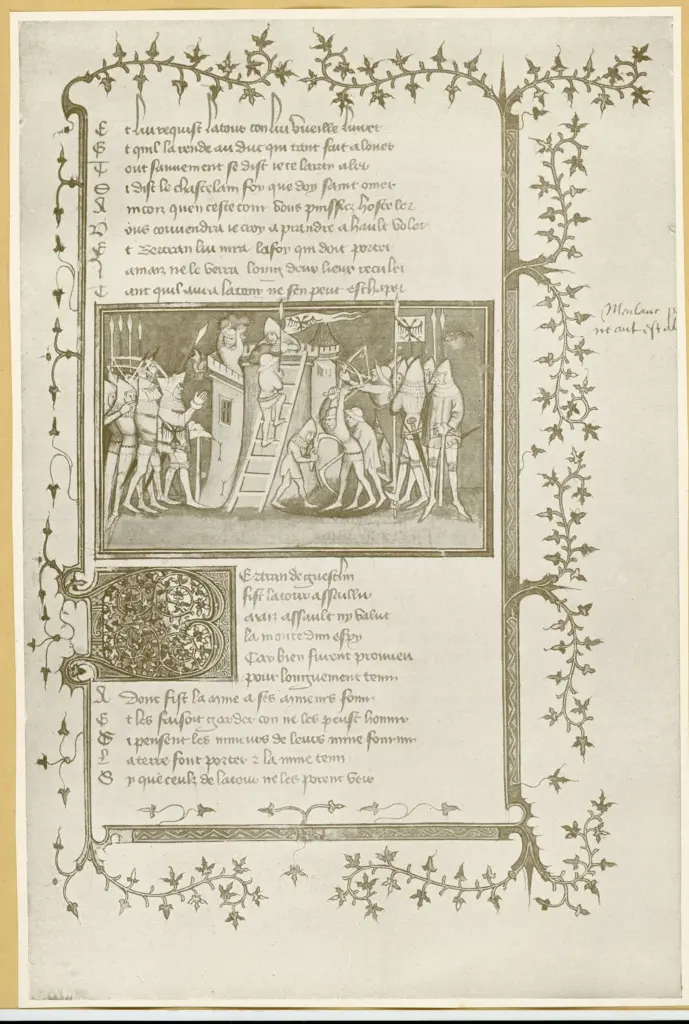 Et lui requist la tour con lui vueille livrer
Et quil la rende au duc qui tant fait a louer
Tout sainnement se dist je te lairay aler
Si dist le chastelain foy que doy saint omer
Aincoiz quen ceste tour vous puissiez hosteler
Vous convendra ie croy a prandre a hault voler
Et Bertran lui iura la foy qui doit porter
Jamaiz ne le verra loing deux lieux reculer
Tant quil aura la tour ne sen peut eschaper
Meulanc
Bertran de guesclin
fist la tour assaillir
maiz assault ny valut
la monte dun espy
Car bien furent prouveu
pour longuement tenir
Adont fist la mine a ses mineurs fouir
Et les faisoit garder con ne les peust honnir
Et pensent les mineurs de leurs mine fournir
La terre font porter & la mine tenir
Sy que ceulz de la tour ne les porent veir